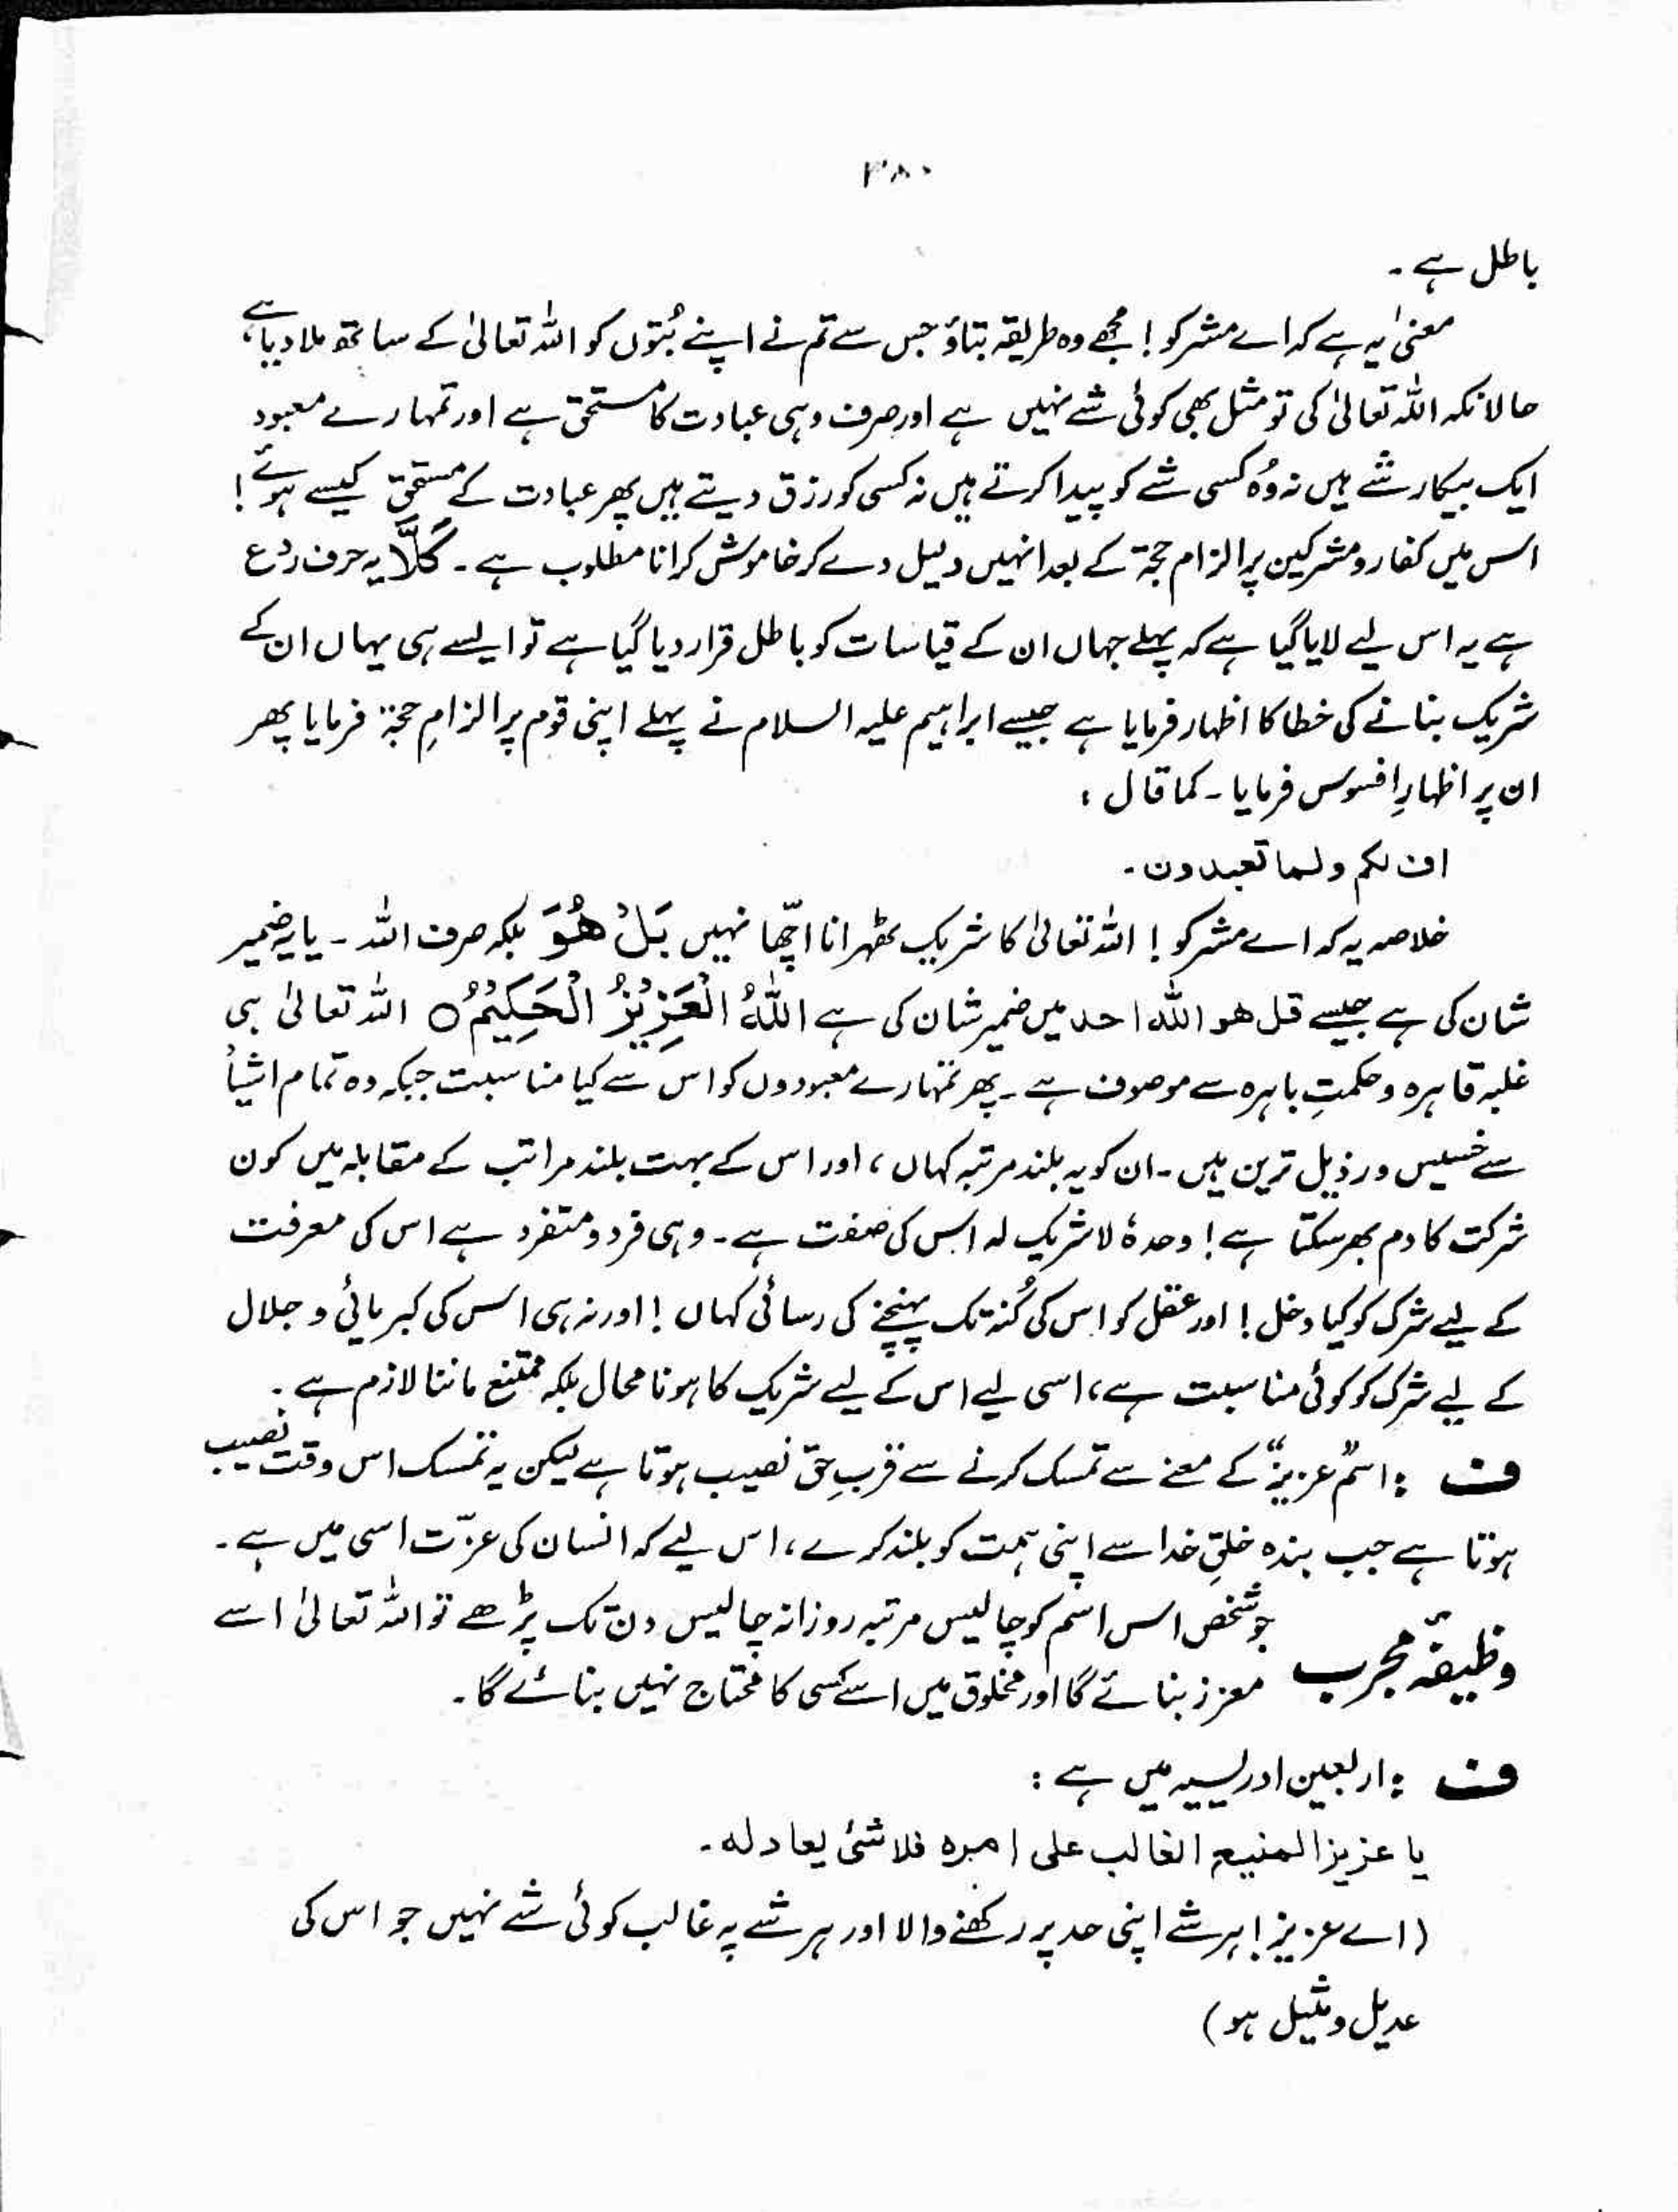 ۳۸۰
باطل ہے۔
معنیٰ یہ ہے کہ اے مشرکو! مجھے وہ طریقہ بتاؤ جس سے تم نے اپنے بُتوں کو اللہ تعالیٰ کے ساتھ ملا دیا ہے،
حالانکہ اللہ تعالیٰ کی تو مثل بھی کوئی شے نہیں ہے اور صرف وہی عبادت کا مستحق ہے اور تمہارے معبود
ایک بیکار شے ہیں نہ وُہ کسی شے کو پیدا کرتے ہیں نہ کسی کو رزق دیتے ہیں پھر عبادت کے مستحق کیسے ہوئے!
اس میں کفار و مشرکین پر الزام حجۃ کے بعد انہیں دلیل دے کر خاموش کرانا مطلوب ہے۔ کَلَّا یہ حرف ردع
ہے یہ اس لیے لایا گیا ہے کہ پہلے جہاں ان کے قیاسات کو باطل قرار دیا گیا ہے تو ایسے ہی یہاں ان کے
شریک بنانے کی خطا کا اظہار فرمایا ہے جیسے ابراہیم علیہ السلام نے پہلے اپنی قوم پر الزامِ حجۃ فرمایا پھر
ان پر اظہارِ افسوس فرمایا۔ کما قال:
اف لکم ولما تعبدون۔
خلاصہ یہ کہ اے مشرکو! اللہ تعالیٰ کا شریک ٹھہرانا اچّھا نہیں بَلْ هُوَ بلکہ صرف اللہ۔ یا یہ ضمیر
شان کی ہے جیسے قل هو الله احد میں ضمیر شان کی ہے اللّٰهُ الْعَزِيْزُ الْحَكِيْمُ ○ اللہ تعالیٰ ہی
غلبہ قاہرہ و حکمتِ باہرہ سے موصوف ہے۔ پھر تمہارے معبودوں کو اس سے کیا مناسبت جبکہ وہ تمام اشیأ
سے خسیس و رذیل ترین ہیں۔ ان کو یہ بلند مرتبہ کہاں، اور اس کے بہت بلند مراتب کے مقابلہ میں کون
شرکت کا دم بھر سکتا ہے! وحدہٗ لاشریک لہ اس کی صفت ہے۔ وہی فرد و متفرد ہے اس کی معرفت
کے لیے شرک کو کیا دخل! اور عقل کو اس کی کُنہ تک پہنچنے کی رسائی کہاں! اور نہ ہی اس کی کبریائی و جلال
کے لیے شرک کو کوئی مناسبت ہے، اسی لیے اس کے لیے شریک کا ہونا محال بلکہ ممتنع ماننا لازم ہے۔
ف : اسم "عزیز" کے معنے سے تمسک کرنے سے قربِ حق نصیب ہوتا ہے لیکن یہ تمسک اس وقت نصیب
ہوتا ہے جب بندہ خلقِ خدا سے اپنی ہمت کو بلند کرے، اس لیے کہ انسان کی عزّت اسی میں ہے۔
وظیفہٌ مجرب جو شخص اس اسم کو چالیس مرتبہ روزانہ چالیس دن تک پڑھے تو اللہ تعالیٰ اسے
معزز بنائے گا اور مخلوق میں اسے کسی کا محتاج نہیں بنائے گا۔
ف : اربعین ادریسیہ میں ہے:
یا عزیز المنیع الغالب علی امرہ فلا شئ یعادلہ۔
(اے عزیز! ہر شے اپنی حد پر رکھنے والا اور ہر شے پہ غالب کوئی شے نہیں جو اس کی
عدیل و مثیل ہو)